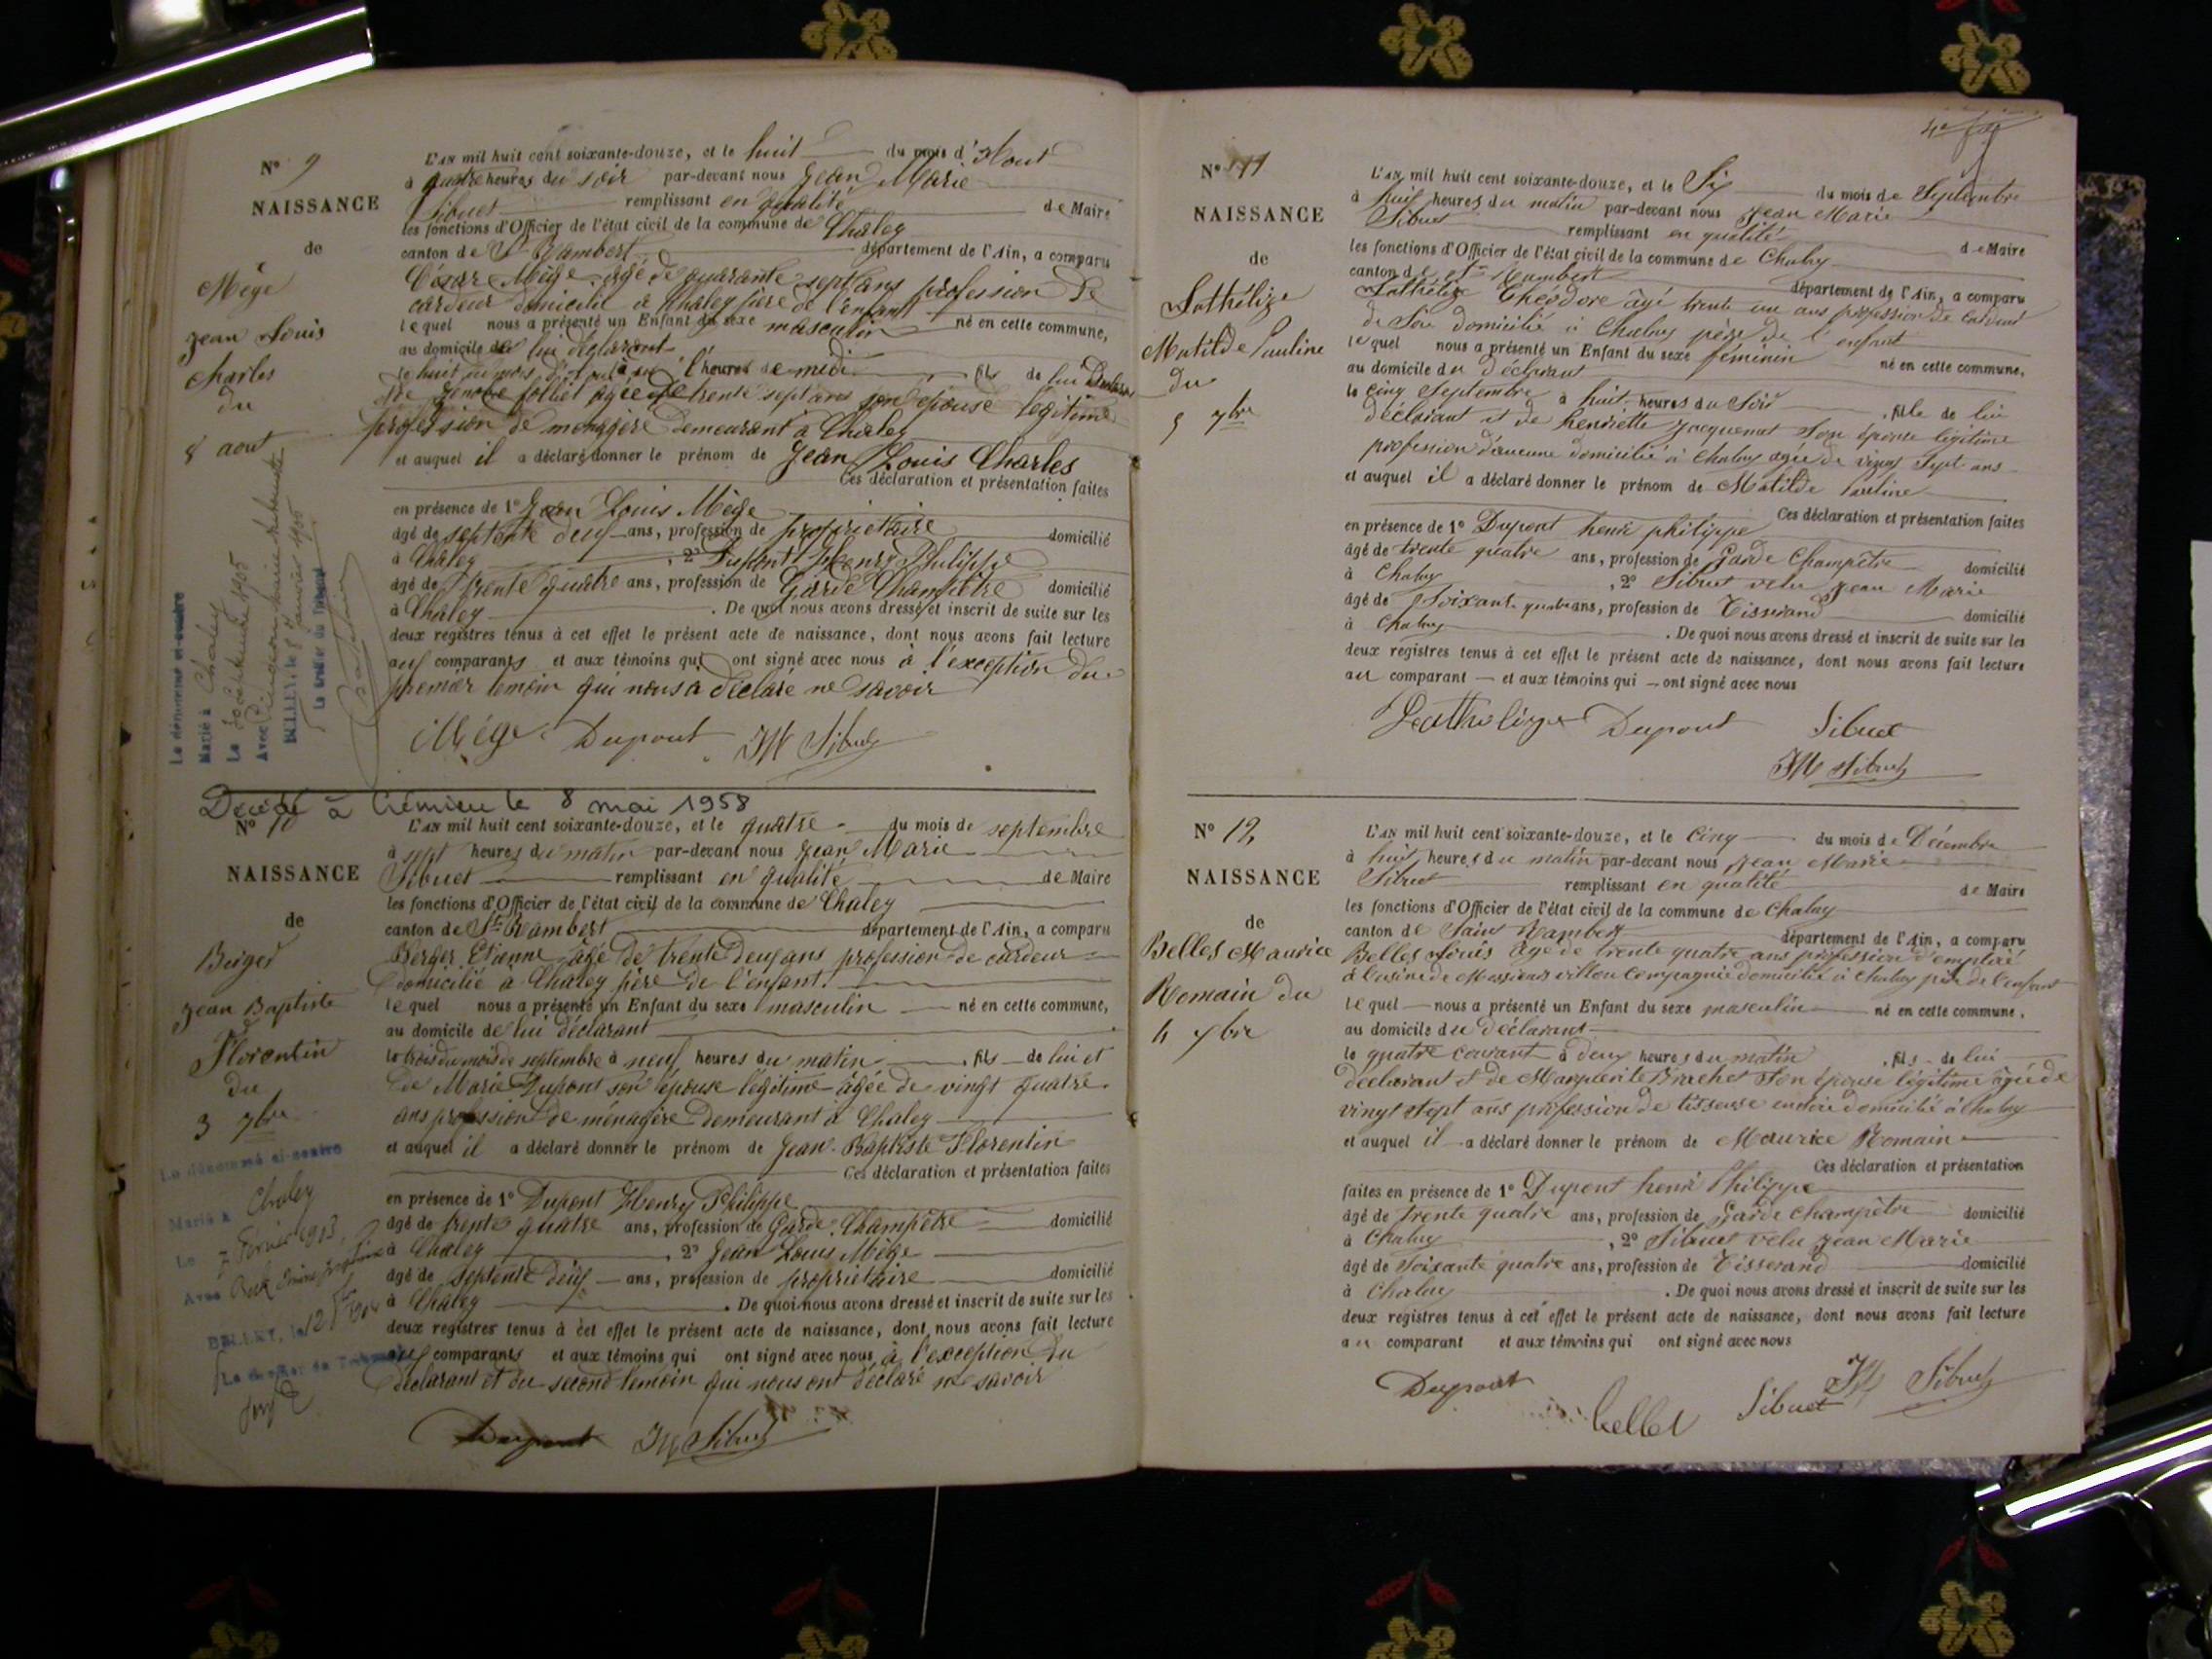 N° 9
NAISSANCE
de
Mège
Jean Louis
Charles
du
8 aout
L'AN mil huit cent soixante-douze, et le huit du mois d'Aout
à quatre heures du soir par-devant nous Jean Marie
Sibuet remplissant en qualité de Maire
les fonctions d'Officier de l'état civil de la commune de Chaley
canton de St Rambert département de l'Ain, a comparu
César Mège âgé de quarante sept ans profession de
cardeur domicilié à Chaley père de l'enfant
lequel nous a présenté un Enfant du sexe masculin né en cette commune,
au domicile de lui déclarant
le huit du mois d' à l'heure de midi fils de lui
sept ans son épouse légitime
profession de menagère demeurant à Chaley
et auquel il a déclaré donner le prénom de Jean Louis Charles
Ces déclaration et présentation faites
en présence de 1° Jean Louis Mège
âgé de septente deux ans, profession de propriétaire domicilié
à Chaley , 2° Dupont Henry Philippe
âgé de trente quatre ans, profession de Garde Champêtre domicilié
à Chaley . De quoi nous avons dressé et inscrit de suite sur les
deux registres tenus à cet effet le présent acte de naissance, dont nous avons fait lecture
aux comparants et aux témoins qui ont signé avec nous à l'exception du
premier temoin qui nous a déclaré ne savoir
Mége Dupont JM Sibuet
Le dénommé ci-contre
Marié à Chaley
Le 1905
Avec
BELLEY, le janvier 1905
Le greffier du Tribunal
Décédé à Crémieu le 8 mai 1958
N° 10
NAISSANCE
de
Berger
Jean Baptiste
Florentin
du
3 7bre
L'AN mil huit cent soixante-douze, et le quatre du mois de septembre
à sept heures du matin par-devant nous Jean Marie
Sibuet remplissant en qualité de Maire
les fonctions d'Officier de l'état civil de la commune de Chaley
canton de St Rambert département de l'Ain, a comparu
Berger Etienne âgé de trente deux ans profession de cardeur
domicilié à Chaley père de l'enfant
lequel nous a présenté un Enfant du sexe masculin né en cette commune,
au domicile de lui déclarant
le trois du mois de septembre à neuf heures du matin , fils de lui et
de Marie Dupont son épouse légitime âgée de vingt quatre
ans profession de ménagère demeurant à Chaley
et auquel il a déclaré donner le prénom de Jean-Baptiste Florentin
Ces déclaration et présentation faites
en présence de 1° Dupont Henry Philippe
âgé de trente quatre ans, profession de Garde Champêtre domicilié
à Chaley , 2° Jean Louis Mège
âgé de septente deux ans, profession de propriétaire domicilié
à Chaley . De quoi nous avons dressé et inscrit de suite sur les
deux registres tenus à cet effet le présent acte de naissance, dont nous avons fait lecture
aux comparants et aux témoins qui ont signé avec nous à l'exception du
déclarant et du second temoin qui nous ont déclaré ne savoir
Dupont JM Sibuet
Le dénommé ci-contre
Marié à Chaley
Le 7 Février 1903
Avec
BELLEY, le 12
Le greffier du Tribunal
N° 11
NAISSANCE
de
Lathélize
Matilde Pauline
du
5 7bre
L'AN mil huit cent soixante-douze, et le Six du mois de Septembre
à huit heures du matin par-devant nous Jean Marie
Sibuet remplissant en qualité de Maire
les fonctions d'Officier de l'état civil de la commune de Chaley
canton de St Rambert département de l'Ain, a comparu
Lathélize Théodore âgé trente un ans profession de Cardeur
de Soie domicilié à Chaley père de l'enfant
lequel nous a présenté un Enfant du sexe féminin né en cette commune,
au domicile du déclarant
le cinq Septembre à huit heures du Soir , fille de lui
déclarant et de henriette Jacquemet Son épouse légitime
profession d'aucune domicilié à Chaley agée de vingt Sept ans
et auquel il a déclaré donner le prénom de Matilde Pauline
Ces déclaration et présentation faites
en présence de 1° Dupont henri philippe
âgé de trente quatre ans, profession de Garde Champêtre domicilié
à Chaley , 2° Sibuet velu Jean Marie
âgé de Soixante quatre ans, profession de Tisserand domicilié
à Chaley . De quoi nous avons dressé et inscrit de suite sur les
deux registres tenus à cet effet le présent acte de naissance, dont nous avons fait lecture
au comparant et aux témoins qui ont signé avec nous
Dupont Sibuet
JM Sibuet
N° 12
NAISSANCE
de
Belles Maurice
Romain du
4 xbre
L'AN mil huit cent soixante-douze, et le Cinq du mois de Décembre
à huit heures du matin par-devant nous Jean Marie
Sibuet remplissant en qualité de Maire
les fonctions d'Officier de l'état civil de la commune de Chaley
canton de Saint Rambert département de l'Ain, a comparu
Belles Louis âgé de trente quatre ans profession d'emploié
à l'usine de Messieurs Compagnie domicilié à Chaley père de l'enfant
lequel nous a présenté un Enfant du sexe masculin né en cette commune,
au domicile du déclarant
le quatre courant à deux heures du matin , fils de lui
déclarant et de Marguerite Brachet Son épouse légitime âgée de
vingt Sept ans profession de tisseuse domicilié à Chaley
et auquel il a déclaré donner le prénom de Maurice Romain
Ces déclaration et présentation
faites en présence de 1° Dupont henri Philippe
âgé de trente quatre ans, profession de Garde champêtre domicilié
à Chaley , 2° Sibuet velu Jean Marie
âgé de Soixante quatre ans, profession de Tisserand domicilié
à Chaley . De quoi nous avons dressé et inscrit de suite sur les
deux registres tenus à cet effet le présent acte de naissance, dont nous avons fait lecture
au comparant et aux témoins qui ont signé avec nous
Dupont belles Sibuet JM Sibuet